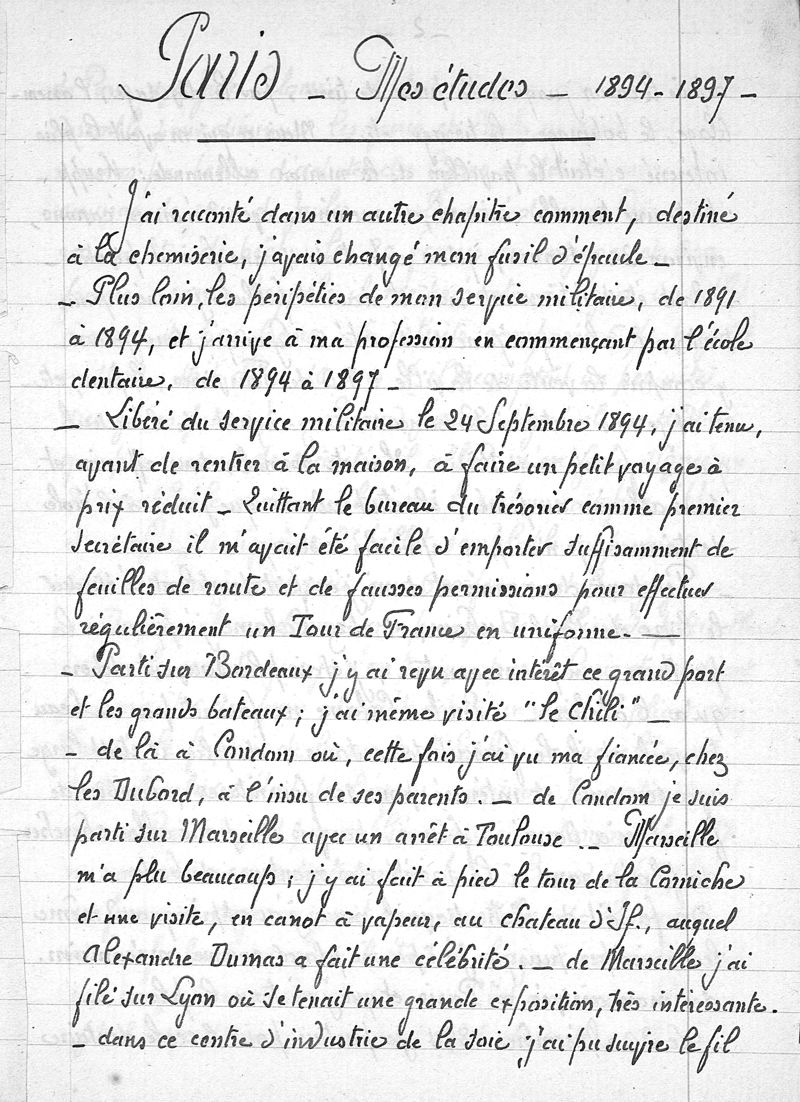 Paris - Mes études - 1894-1897-
J'ai raconté dans un autre chapitre comment, destiné
à la chemiserie, j'avais changé mon fusil d'épaule -
- Plus loin, les péripéties de mon service militaire, de 1891
à 1894, et j'arrive à ma profession en commençant par l'école
dentaire, de 1894 à 1897 - -
- Libéré du service militaire le 24 Septembre 1894, j'ai tenu,
avant de rentrer à la maison, à faire un petit voyage à
prix réduit - Quittant le bureau du trésorier comme premier
secrétaire il m'avait été facile d'emporter suffisamment de
feuilles de route et de fausses permissions pour effectuer
régulièrement un Tour de France en uniforme. -
- Parti sur Bordeaux j'y ai revu avec intérêt ce grand port
et les grands bateaux ; j'ai même visité "le Chili" -
- de là à Condom où, cette fois j'ai vu ma fiancée, chez
les Dubord, à l'insu de ses parents. - de Condom je suis
parti sur Marseille avec un arrêt à Toulouse. - Marseille
m'a plu beaucoup ; j'y ai fait à pied le tour de la Corniche
et une visite, en canot à vapeur, au chateau d'If., auquel
Alexandre Dumas a fait une célébrité. - de Marseille j'ai
filé sur Lyon où se tenait une grande exposition, très intéressante.
- dans ce centre d'industrie de la soie j'ai pu suivre le fil